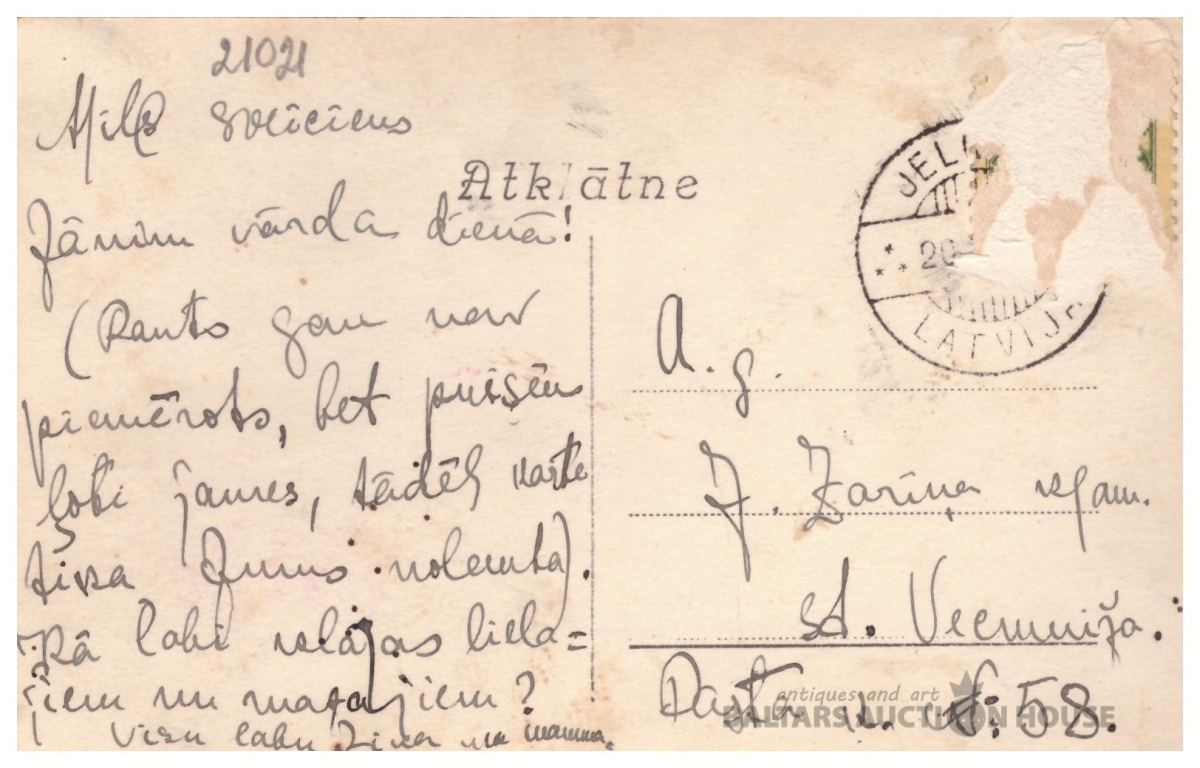 21021
Mīļš sveiciens
Jānim vārda dienā!
(Karte gan nav
piemērota, bet puisēns
ļoti jauns, tādēļ karte
tika Jums nolemta).
Kā labi klājas liela=
jiem un mazajiem?
Visu labu
Atklātne
JEL
20
LATVIJA
A. g.
J. Zariņa kgam.
st. Vecmuiža.
Pasta n. 58.
antiques and art
BALTARS AUCTION HOUSE